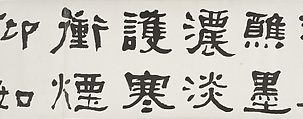 醮墨
濃淡
護寒
衝煙
如